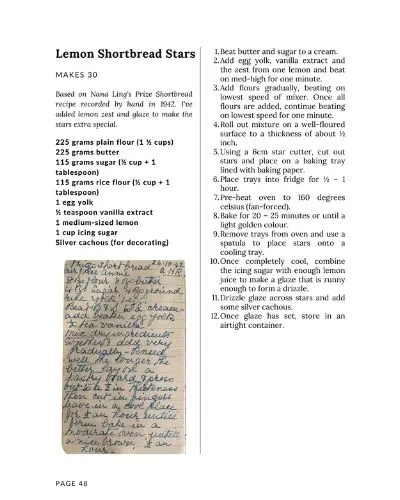 Lemon Shortbread Stars
MAKES 30
Based on Nana Ling's Prize Shortbread
recipe recorded by hand in 1942. I've
added lemon zest and glaze to make the
stars extra special.
225 grams plain flour (1 ½ cups)
225 grams butter
115 grams sugar (½ cup + 1
tablespoon)
115 grams rice flour (½ cup + 1
tablespoon)
1 egg yolk
½ teaspoon vanilla extract
1 medium-sized lemon
1 cup icing sugar
Silver cachous (for decorating)
Prize Shortbread
8oz flour 8oz butter
4oz sugar 4oz ground
rice yolk 1 egg
Beat B & S to a cream
add beaten egg yolk
& tea vanilla
mix dry ingredients
together & add very
gradually - knead
well the longer the
better lay on a
pastry board & press
out to ½ in thickness
then cut in fingers
leave in a cool place
for ½ an hour until
firm bake in a
moderate oven until
a nice brown, ½ an
hour.
1. Beat butter and sugar to a cream.
2. Add egg yolk, vanilla extract and
the zest from one lemon and beat
on med-high for one minute.
3. Add flours gradually, beating on
lowest speed of mixer. Once all
flours are added, continue beating
on lowest speed for one minute.
4. Roll out mixture on a well-floured
surface to a thickness of about ½
inch.
5. Using a 6cm star cutter, cut out
stars and place on a baking tray
lined with baking paper.
6. Place trays into fridge for ½ – 1
hour.
7. Pre-heat oven to 160 degrees
celsius (fan-forced).
8. Bake for 20 – 25 minutes or until a
light golden colour.
9. Remove trays from oven and use a
spatula to place stars onto a
cooling tray.
10. Once completely cool, combine
the icing sugar with enough lemon
juice to make a glaze that is runny
enough to form a drizzle.
11. Drizzle glaze across stars and add
some silver cachous.
12. Once glaze has set, store in an
airtight container.
PAGE 48